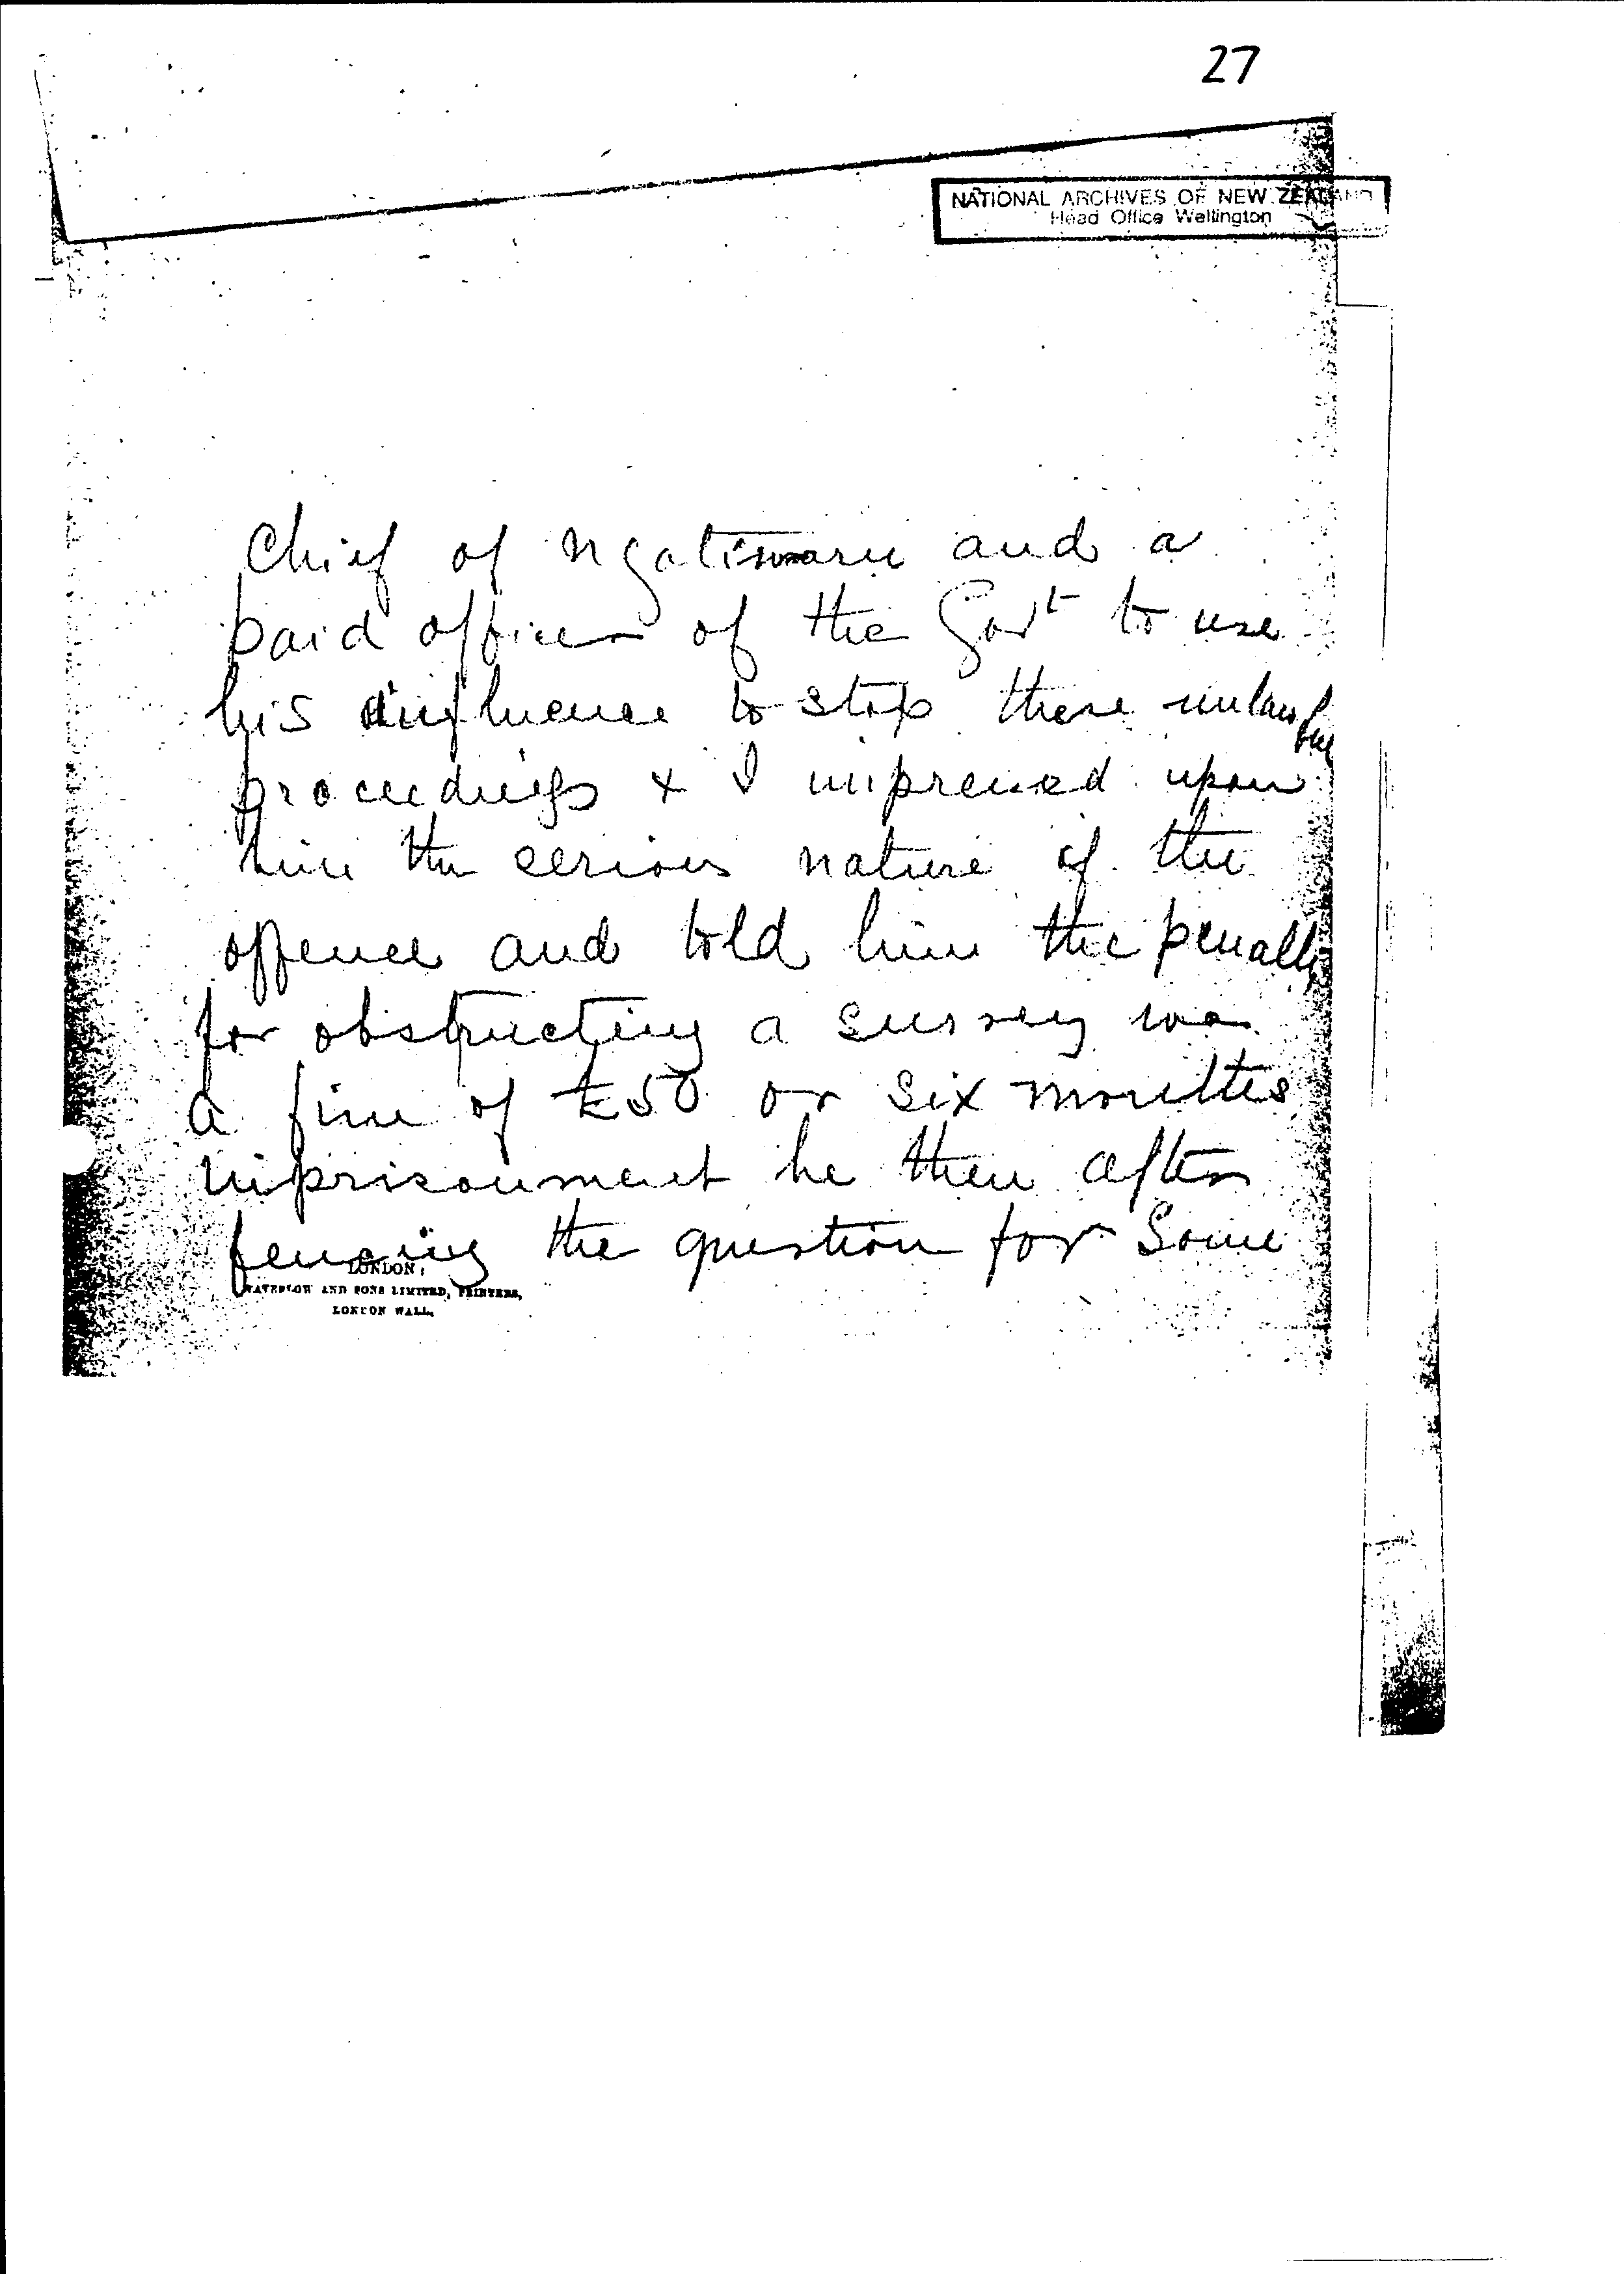 27
NATIONAL ARCHIVES OF NEW ZEALAND
Head Office Wellington
Chief of Ngatimaru and a
paid officer of the Govt to use
his influence to stop these unlawful
proceedings & I impressed upon
him the serious nature of the
offence and told him the penalty
for obstructing a survey was
a fine of £50 or six months
imprisonment he then after
fencing the question for some
LONDON:
WATERLOW AND SONS LIMITED, PRINTERS,
LONDON WALL.